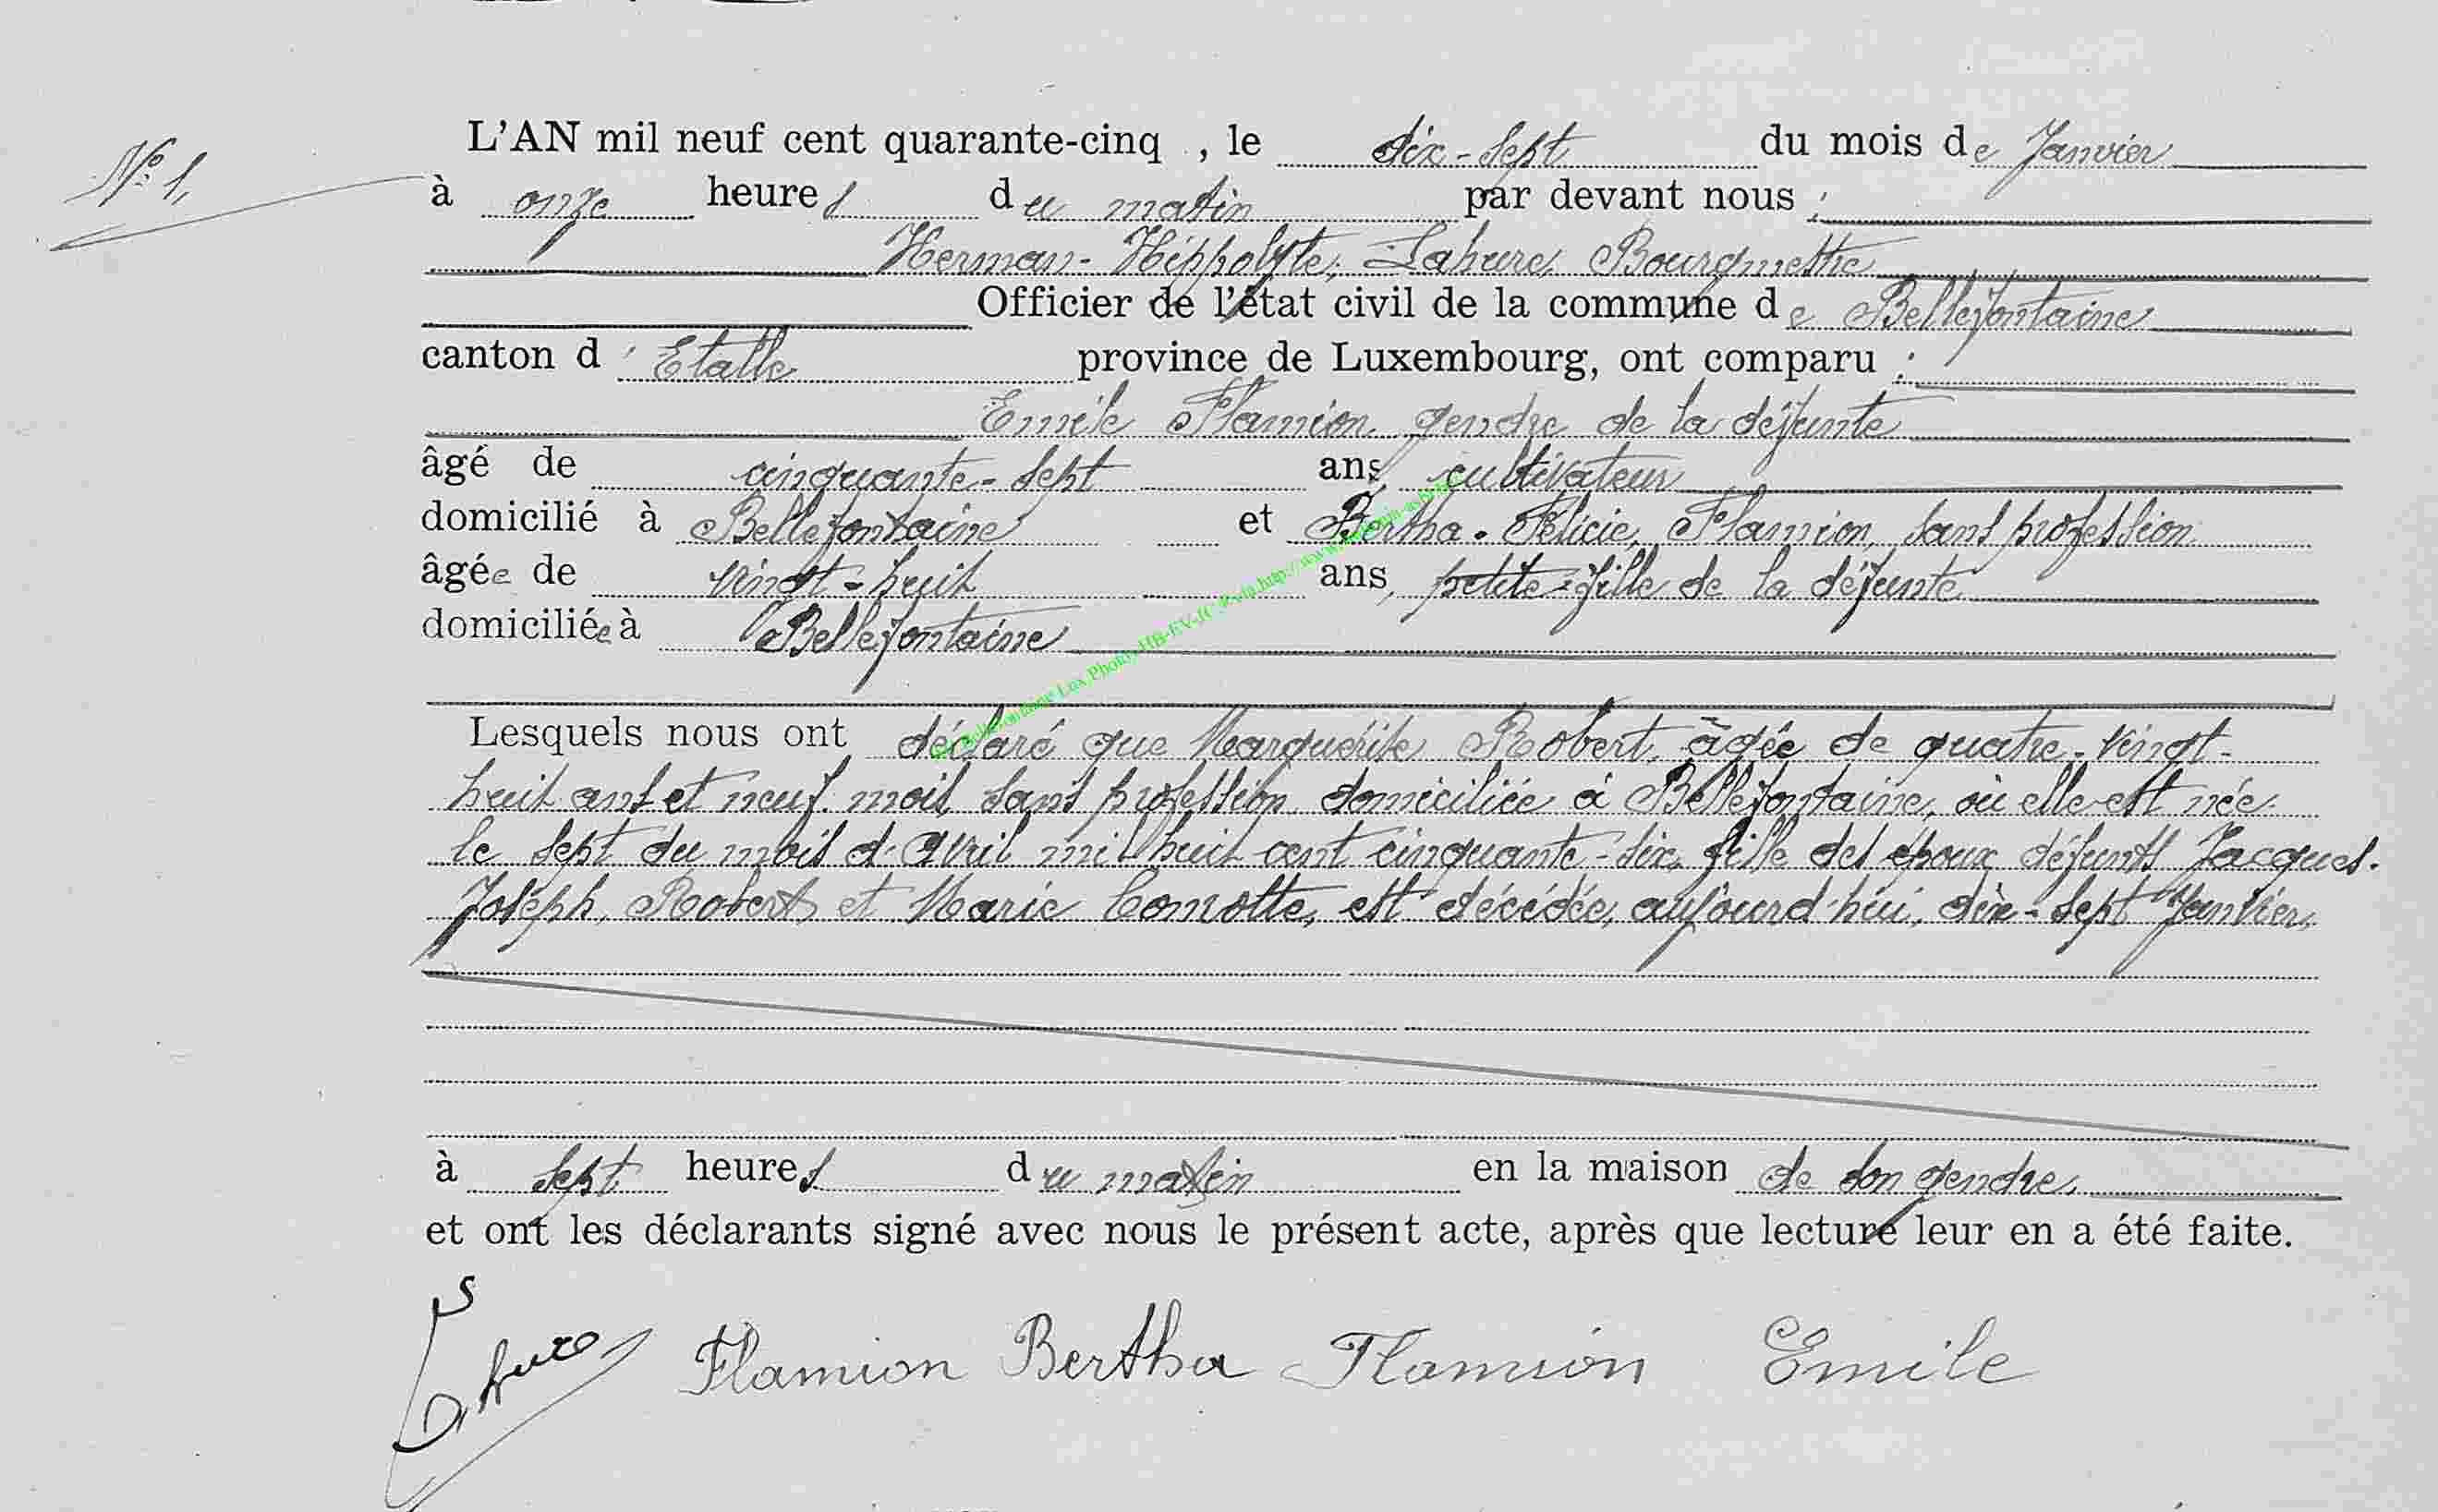 N° 1,
L'AN mil neuf cent quarante-cinq , le dix-sept du mois de Janvier
à onze heures du matin par devant nous :
Herman-Hippolyte, Lahure, Bourgmestre
Officier de l'état civil de la commune de Bellefontaine
canton d'Etalle province de Luxembourg, ont comparu :
Emile Flamion gendre de la défunte
âgé de cinquante-sept ans, cultivateur
domicilié à Bellefontaine et Bertha-Félicie, Flamion, sans profession
âgée de vingt-huit ans, petite-fille de la défunte
domiciliée à Bellefontaine
Lesquels nous ont déclaré que Marguérite Robert, âgée de quatre-vingt-
huit ans et neuf mois, sans profession domiciliée à Bellefontaine, où elle est née
le sept du mois d'avril mil huit cent cinquante-six, fille des époux défunts Jacques-
Joseph, Robert et Marie Comotte, est décédée, aujourd'hui, dix-sept Janvier,
à sept heures du matin en la maison de son gendre,
et ont les déclarants signé avec nous le présent acte, après que lecture leur en a été faite.
Lahure Flamion Bertha Flamion Emile